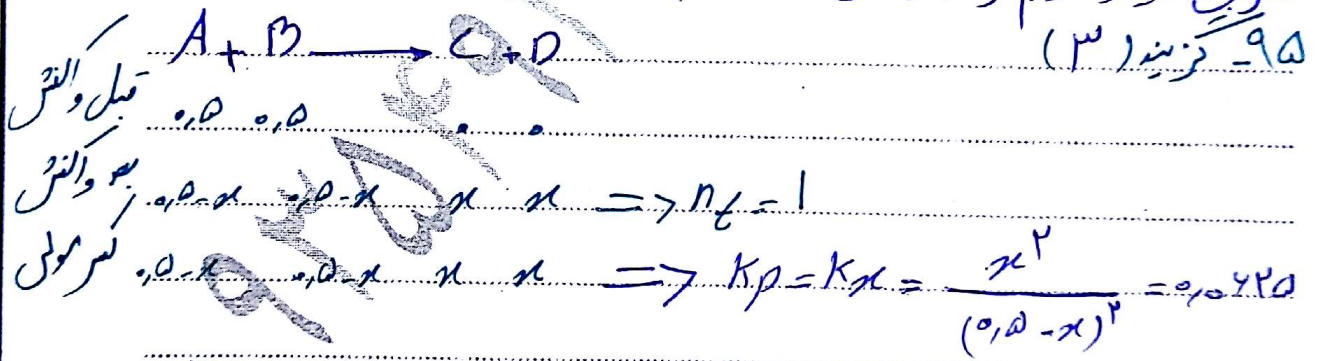 ۹۵- گزینه (۳)
A + B → C + D
قبل واکنش ۰,۵ ۰,۵ ۰ ۰
بعد واکنش ۰,۵-x ۰,۵-x x x => n_t = 1
کسر مولی ۰,۵-x ۰,۵-x x x => Kp = Kx = x^۲ / (۰,۵-x)^۲ = ۰,۰۶۲۵